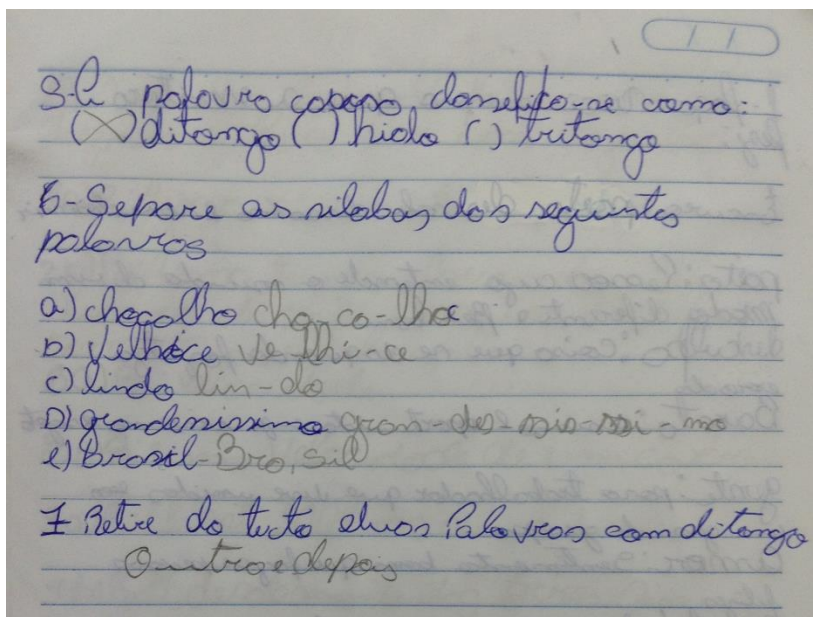 5-A palavra copaso, classefifo-se como:
(X) ditongo ( ) hido ( ) tritongo
6-Separe as silabas das seguintes
palavras
a) chocalho cho-ca-lho
b) Velhice Ve-lhi-ce
c) lindo lin-do
D) grandesissimo gran-des-sis-ssi-mo
e) Brasil-Bra, sil
7 Retire do texto duas Palavras com ditongo
Outro e depois